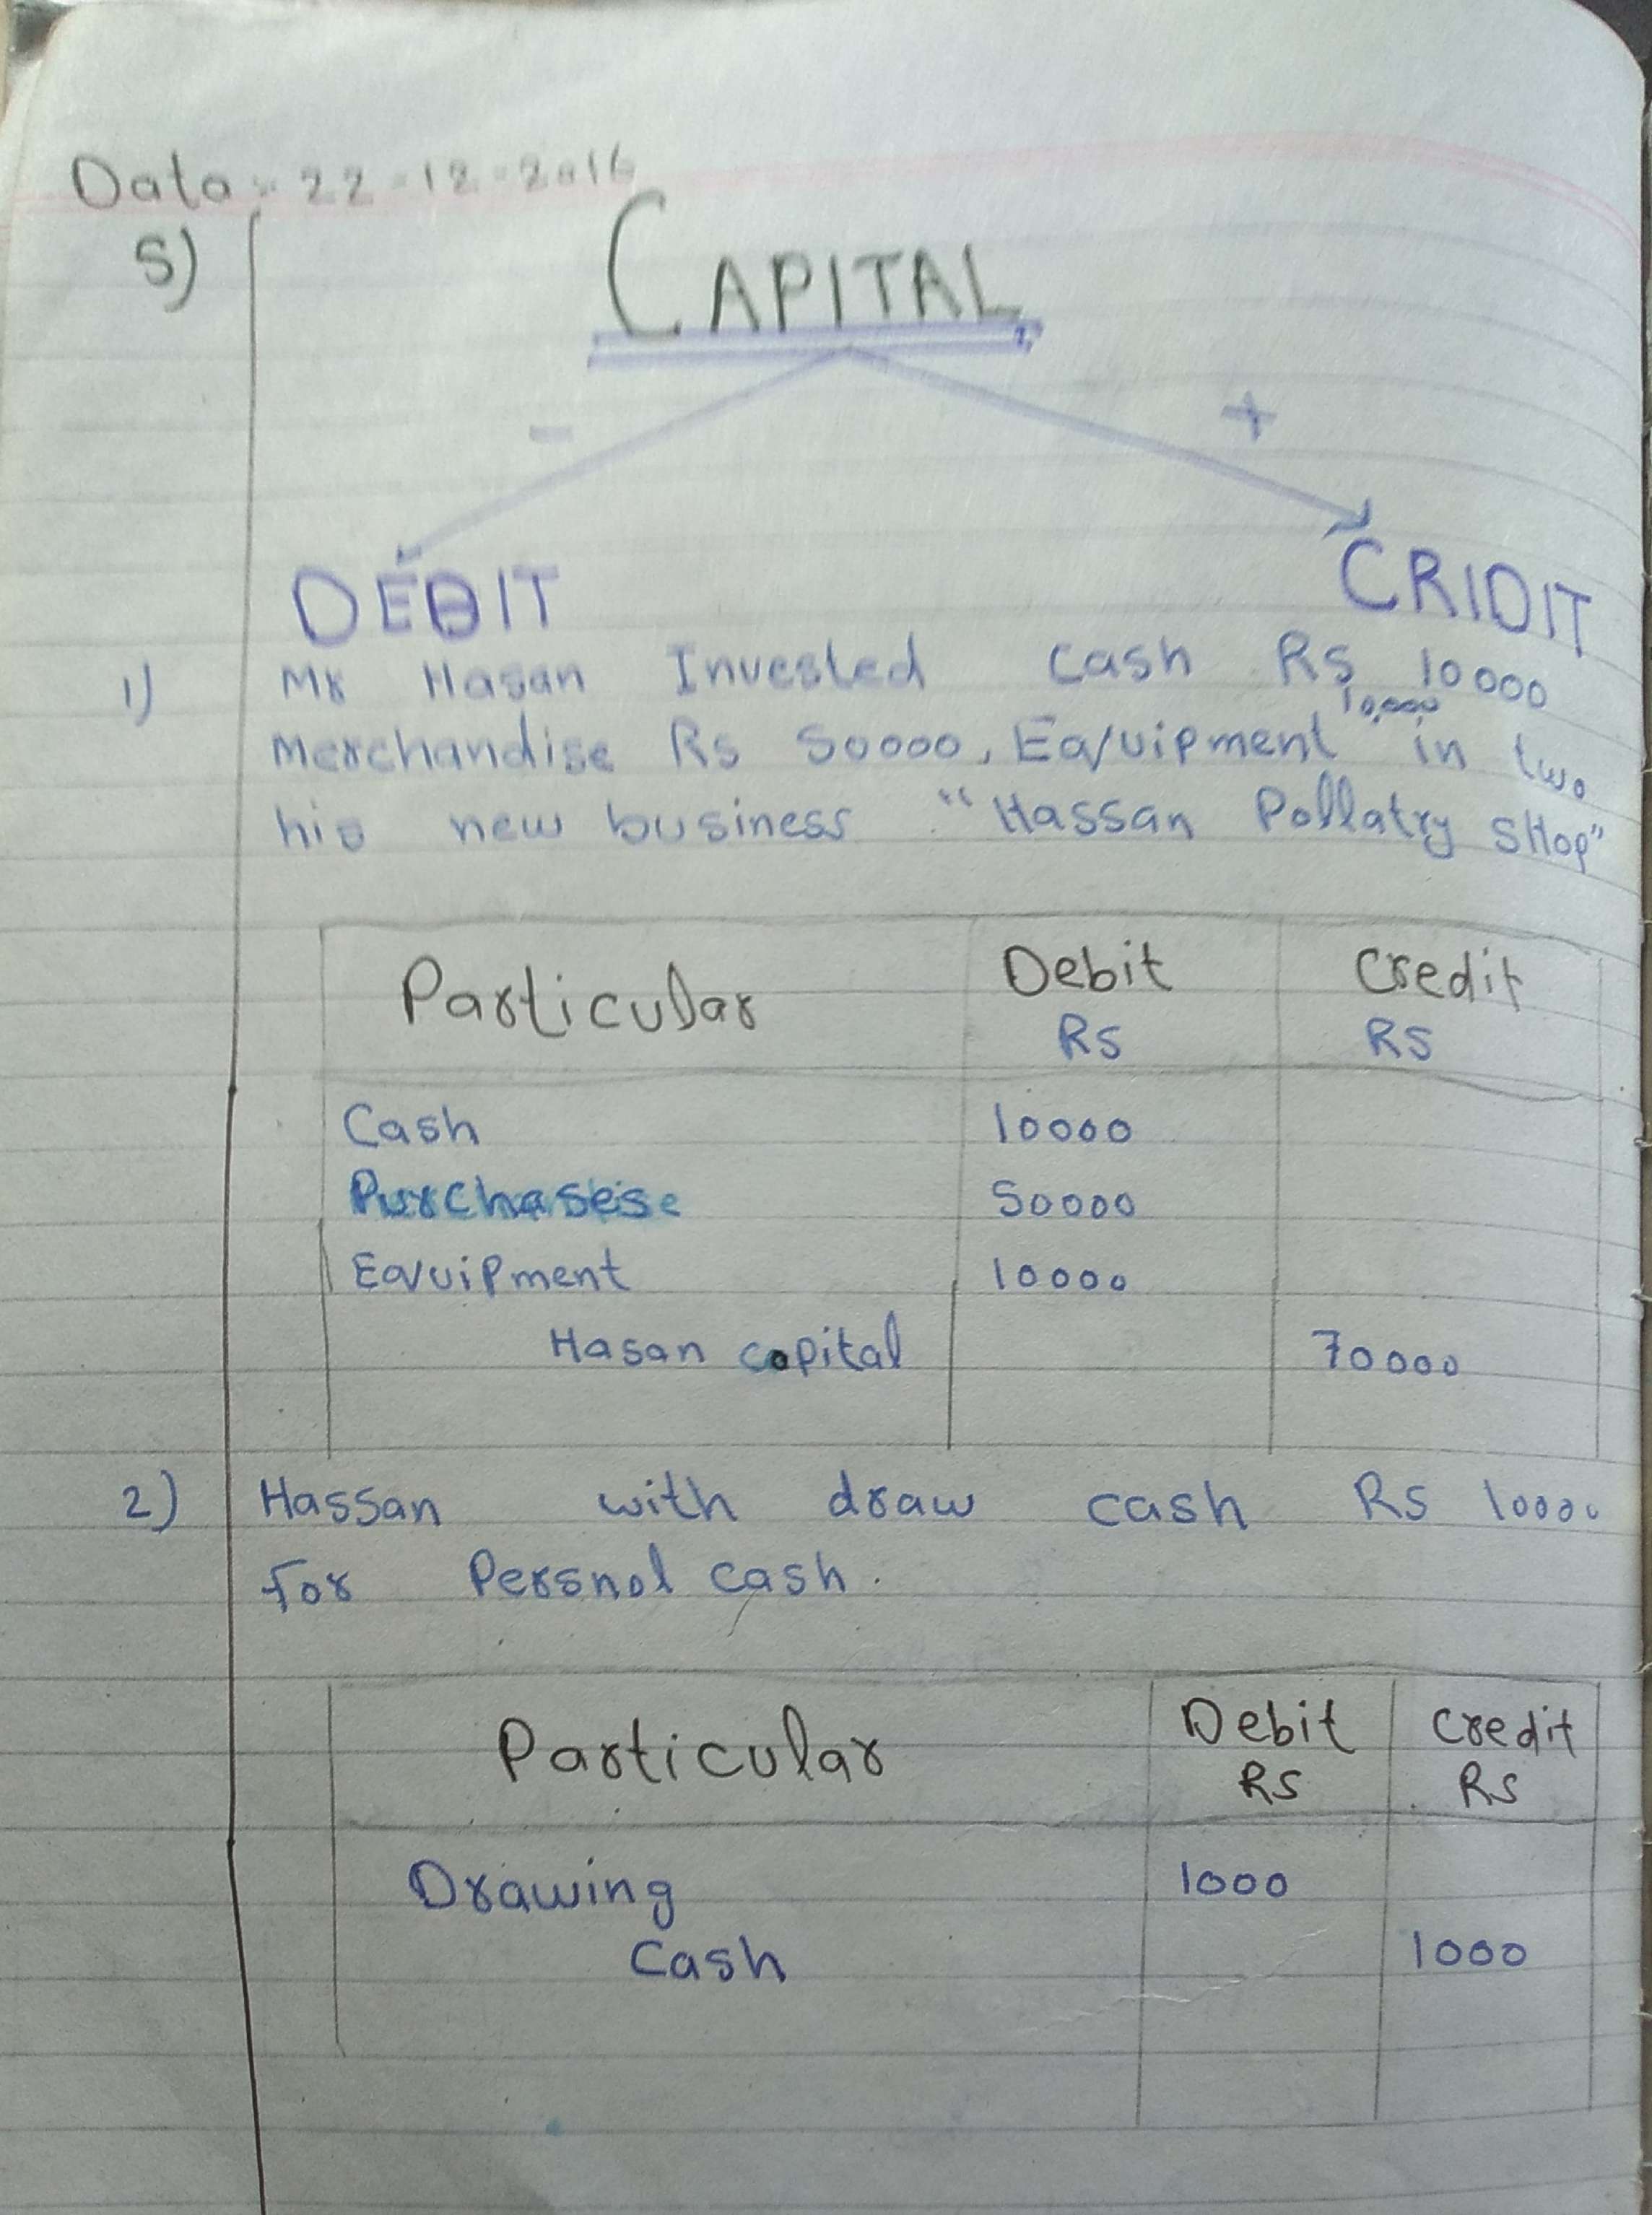 Data :- 22-12-2016
5)
CAPITAL
- +
DEBIT CRIDIT
1) Mr Hasan Invested cash Rs 10000
10,000
Merchandise Rs 50000, Equipment in two
his new business "Hassan Pollatry SHop"
Particular Debit Credit
Rs Rs
Cash 10000
Purchases 50000
Equipment 10000
Hasan capital 70000
2) Hassan with draw cash Rs 10000
for Persnol cash.
Particular Debit Credit
Rs Rs
Drawing 1000
Cash 1000